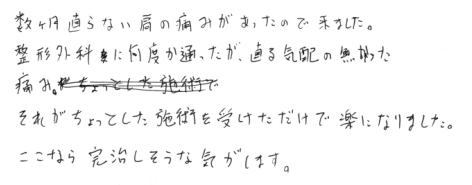 数ヶ月直らない肩の痛みがあったので来ました。
整形外科に何度か通ったが、直る気配の無かった
痛み。ちょっとした施術で
それがちょっとした施術を受けただけで楽になりました。
ここなら完治しそうな気がします。